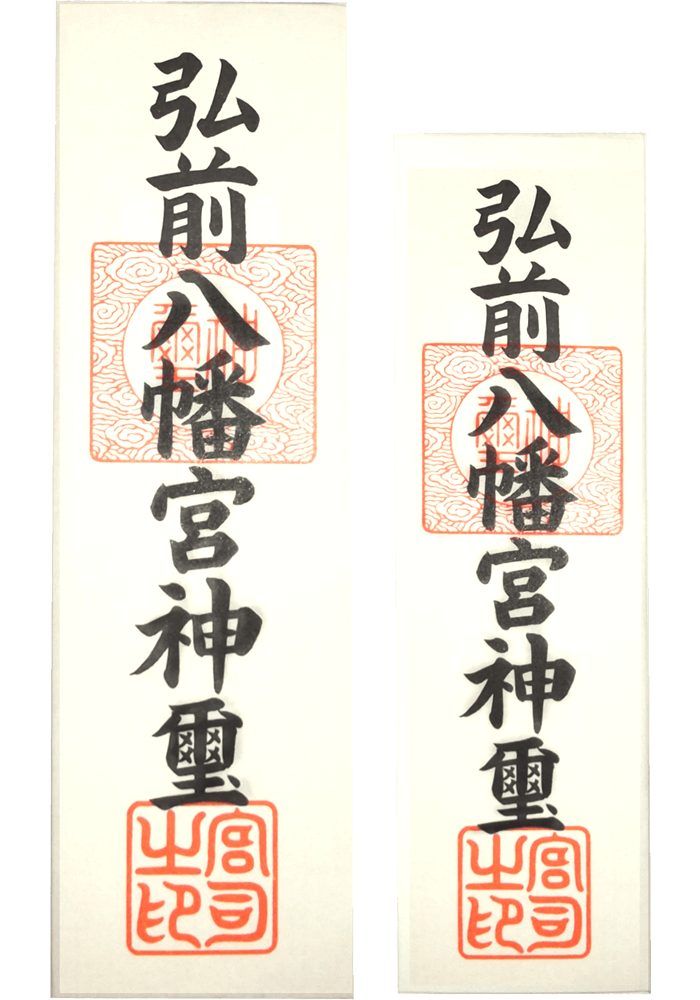 弘前八幡宮神璽
神璽
宮司之印
弘前八幡宮神璽
神璽
宮司之印